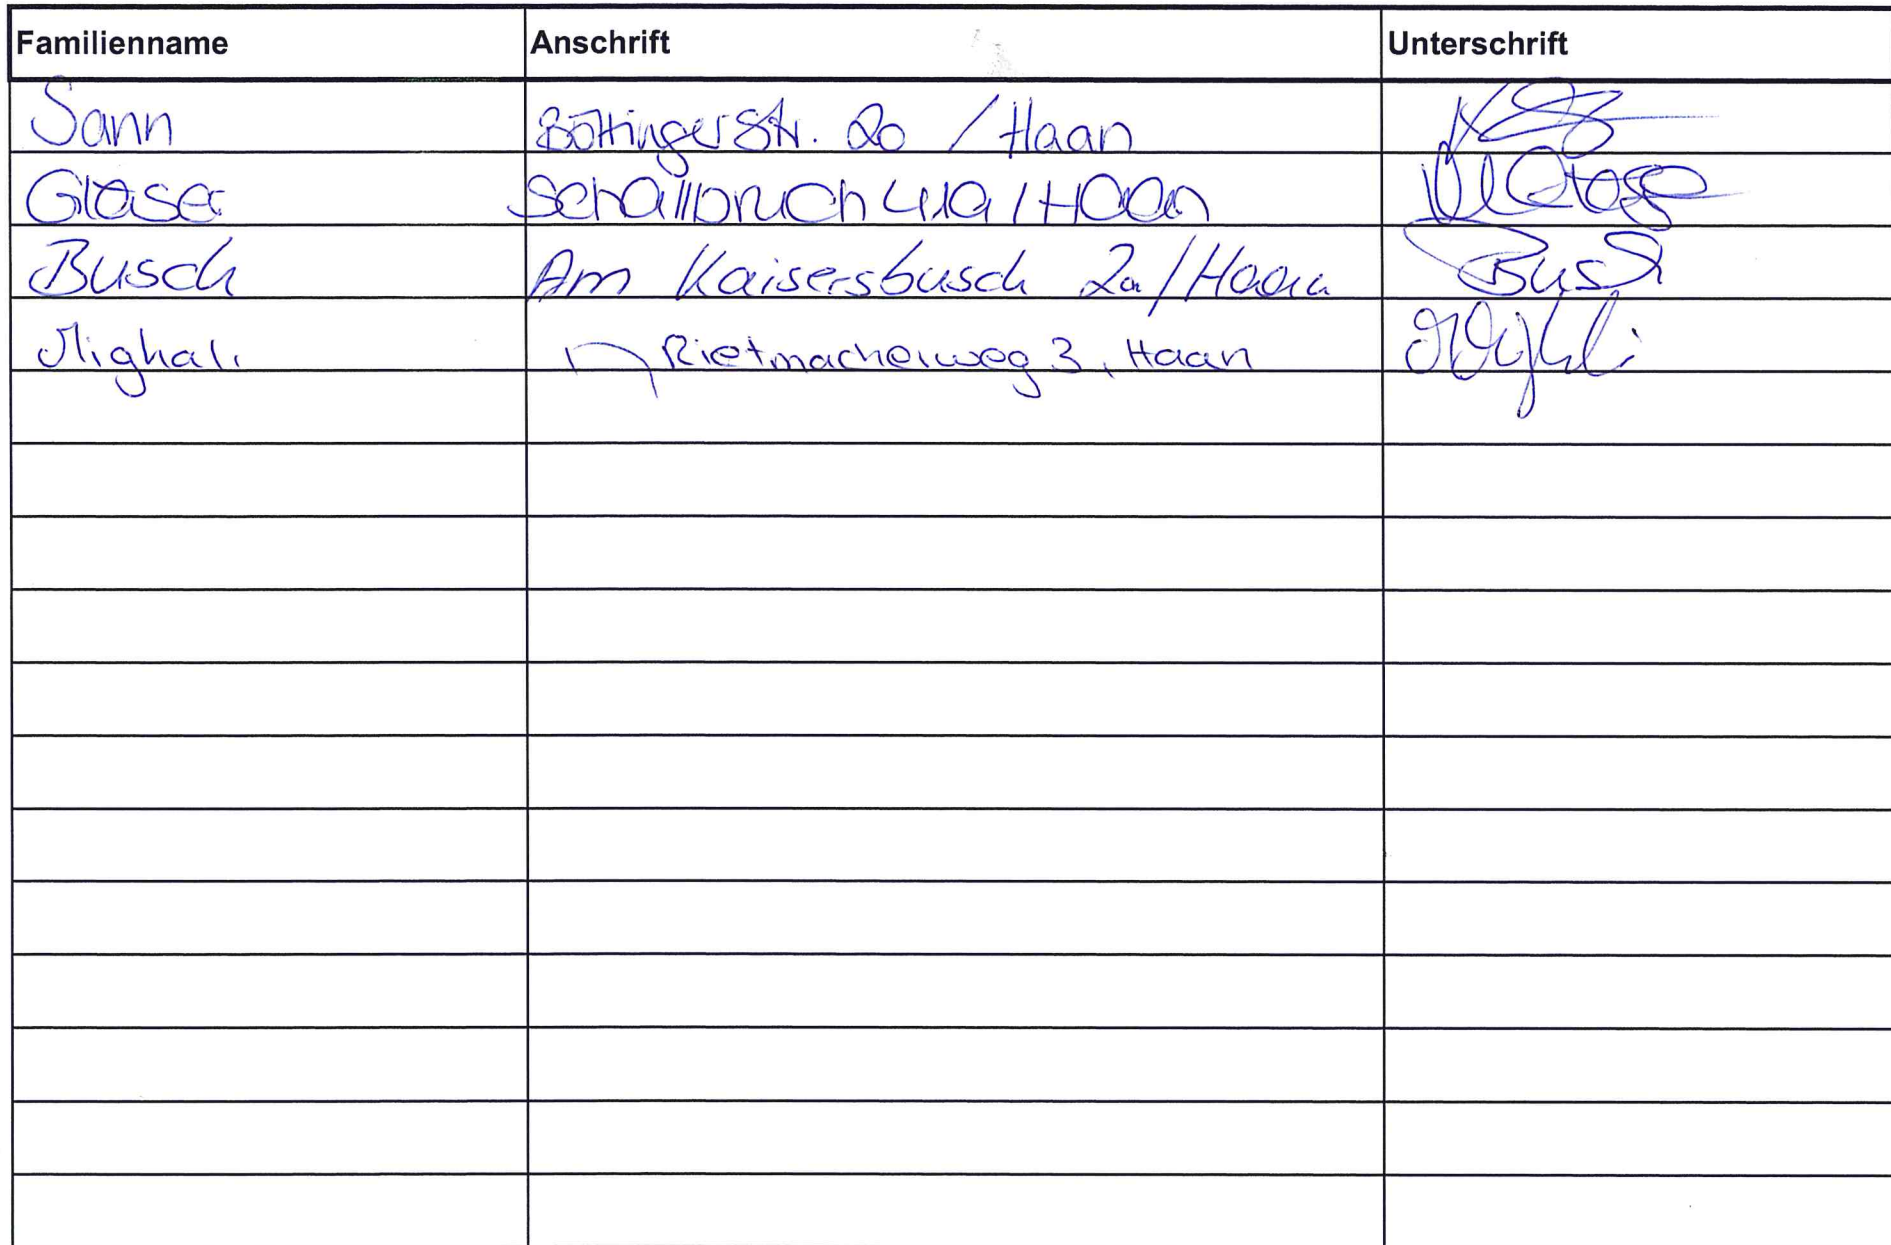 Familienname Anschrift Unterschrift
Sann Böttingerstr. 20 / Haan
Glaser Schallbruch 41a / Haan
Busch Am Kaisersbusch 2a / Haan Busch
Mighali Rietmacherweg 3, Haan Mighali